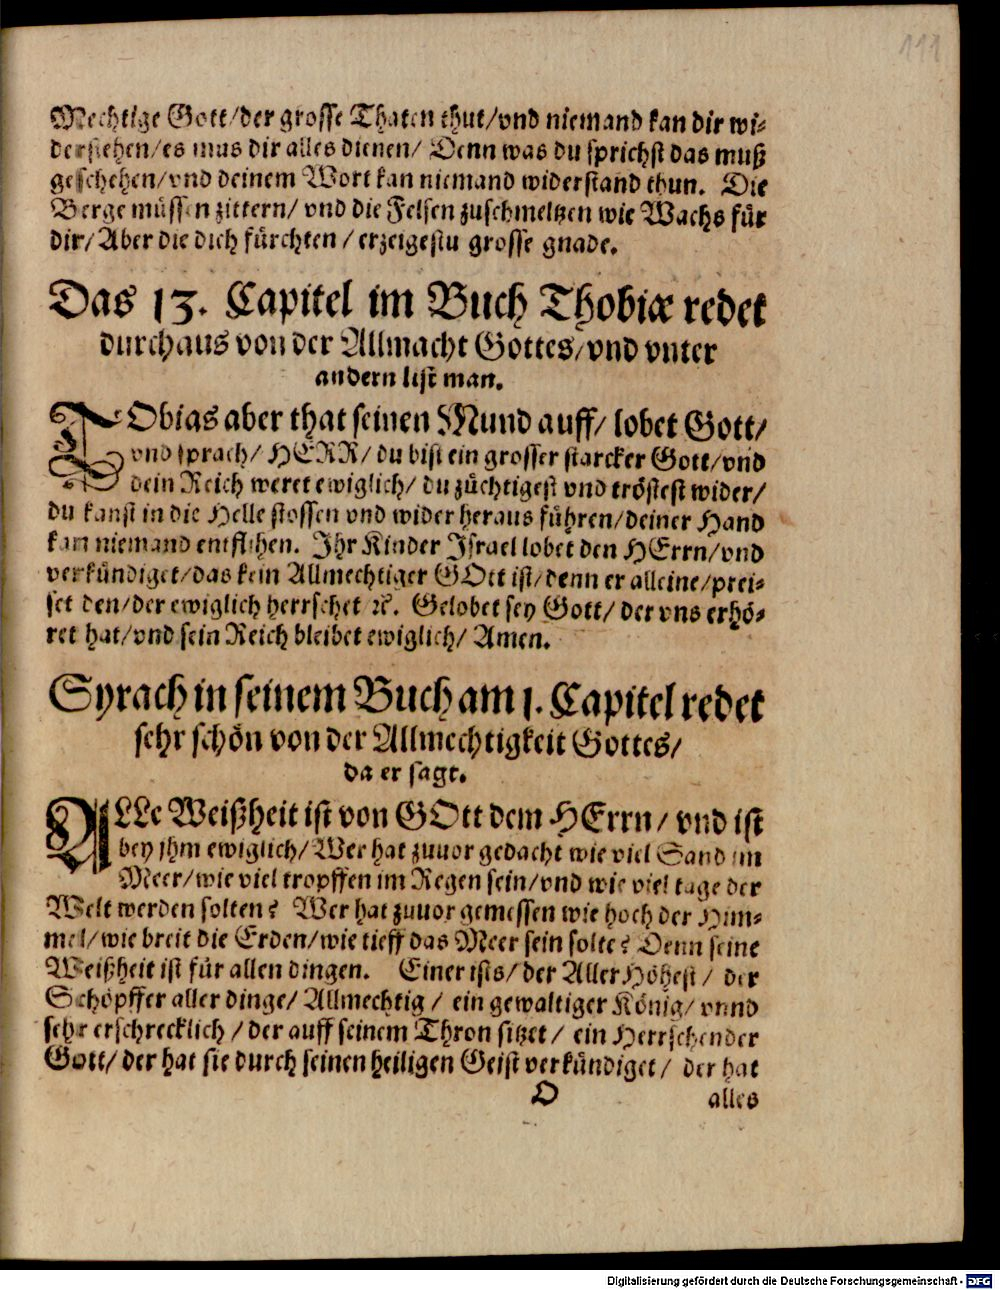 111
Mechtige Gott/der grosse Thaten thut/vnd niemand kan dir wi-
derstehen/es mus dir alles dienen/ Denn was du sprichst das muß
geschehen/vnd deinem Wort kan niemand widerstand thun. Die
Berge müssen zittern/ vnd die Felsen zuschmeltzen wie Wachs für
dir/ Aber die dich fürchten / erzeigestu grosse gnade.
Das 13. Capitel im Buch Thobiæ redet
durchaus von der Allmacht Gottes/vnd vnter
andern list man.
TObias aber that seinen Mund auff/ lobet Gott/
vnd sprach/ HERR/ du bist ein grosser starcker Gott/vnd
dein Reich weret ewiglich/ du züchtigest vnd tröstest wider/
du kanst in die Helle stossen vnd wider heraus führen/deiner Hand
kan niemand entfliehen. Ihr Kinder Israel lobet den HErrn/vnd
verkündiget/das kein Allmechtiger GOtt ist/denn er alleine/prei-
set den/der ewiglich herrschet ꝛc. Gelobet sey Gott/ der vns erhö-
ret hat/vnd sein Reich bleibet ewiglich/ Amen.
Syrach in seinem Buch am 1. Capitel redet
sehr schön von der Allmechtigkeit Gottes/
da er sagt.
ALLe Weißheit ist von GOtt dem HErrn/ vnd ist
bey jhm ewiglich/ Wer hat zuuor gedacht wie viel Sand im
Meer/wie viel tropffen im Regen sein/vnd wie viel tage der
Welt werden solten? Wer hat zuuor gemessen wie hoch der Him-
mel/wie breit die Erden/wie tieff das Meer sein solte? Denn seine
Weißheit ist für allen dingen. Einer ists/ der Aller Höhest/ der
Schöpffer aller dinge/ Allmechtig / ein gewaltiger König/ vnnd
sehr erschrecklich / der auff seinem Thron sitzet / ein Herrschender
Gott/ der hat sie durch seinen heiligen Geist verkündiget/ der hat
O alles
Digitalisierung gefördert durch die Deutsche Forschungsgemeinschaft - DFG